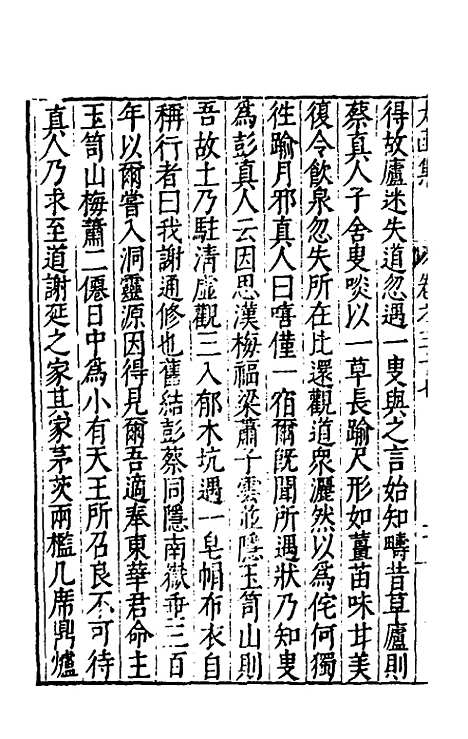 得故廬迷失道忽遇一叟與之言始知疇昔草廬則
蔡真人子舍叟啖以一草長踰尺形如薑苗味甘美
復令飲泉忽失所在比還觀道衆灑然以為侘何獨
徃踰月邪真人曰嘻僅一宿爾既聞所遇狀乃知叟
為彭真人云因思漢梅福梁蕭子雲並隱玉笥山則
吾故土乃駐清虛觀三入郁木坑遇一皂帽布衣自
稱行者曰我謝通修也舊結彭蔡同隱南嶽垂三百
年以爾嘗入洞靈源因得見爾吾適奉東華君命主
玉笥山梅蕭二僊日中為小有天王所召良不可待
真人乃求至道謝延之家其家茅茨兩檻几席鼎爐